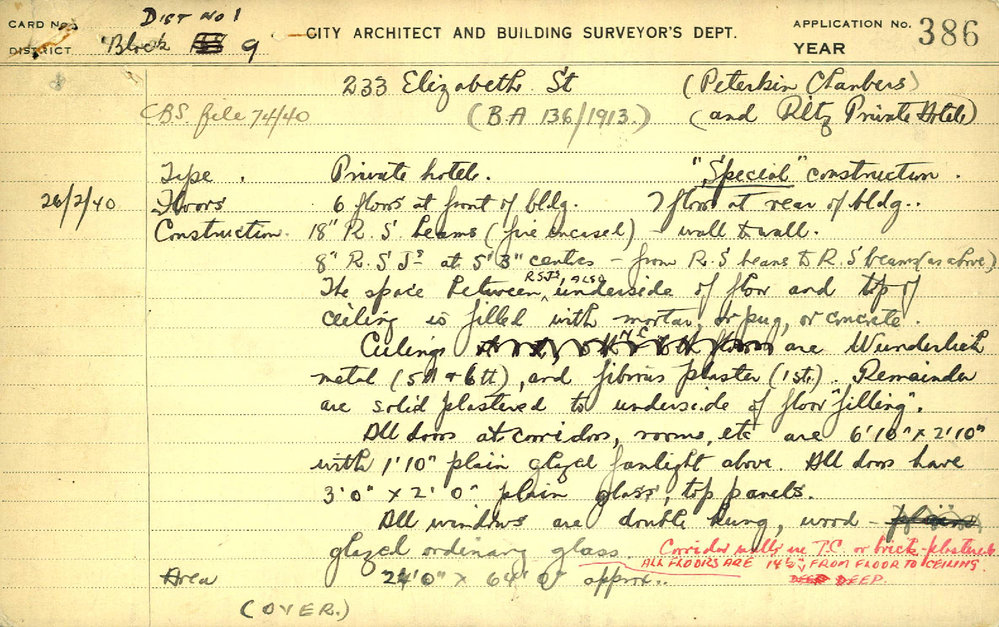 CARD No.
DIST NO 1
CITY ARCHITECT AND BUILDING SURVEYOR'S DEPT.
APPLICATION No. 386
DISTRICT Block 9
YEAR
233 Elizabeth St (Peterkin Chambers)
CBS file 74/40 (B.A 136/1913.) (and Ritz Private Hotel)
Type. Private hotel. "Special" construction.
26/2/40 Floors 6 floors at front of bldg. 7 floors at rear of bldg..
Construction. 18" R.S' beams (fire encased) - wall to wall.
8" R.S'Js at 5'3" centres - from R.S beams to R.S' beams (as above)
The space between RSJs, ALSO underside of floor and top of
ceiling is filled with mortar, or pug, or concrete.
Ceilings are Wunderlich
metal (5th & 6th), and fibrous plaster (1st). Remainder
are solid plastered to underside of floor "filling".
All doors at corridors, rooms, etc are 6'10" x 2'10"
with 1'10" plain glazed fanlight above. All doors have
3'0" x 2'0" plain glass, top panels.
All windows are double hung, wood - plain
glazed ordinary glass. Corridor walls are T.C. or brick-plastered
ALL FLOORS ARE 14½" FROM FLOOR TO CEILING
DEEP DEEP.
Area 24'0" x 64'0" approx..
(OVER.)